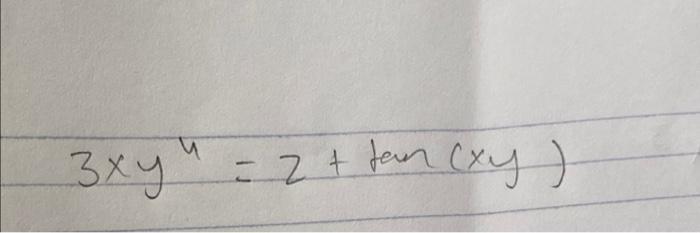 3xy⁴ = 2 + tan(xy)